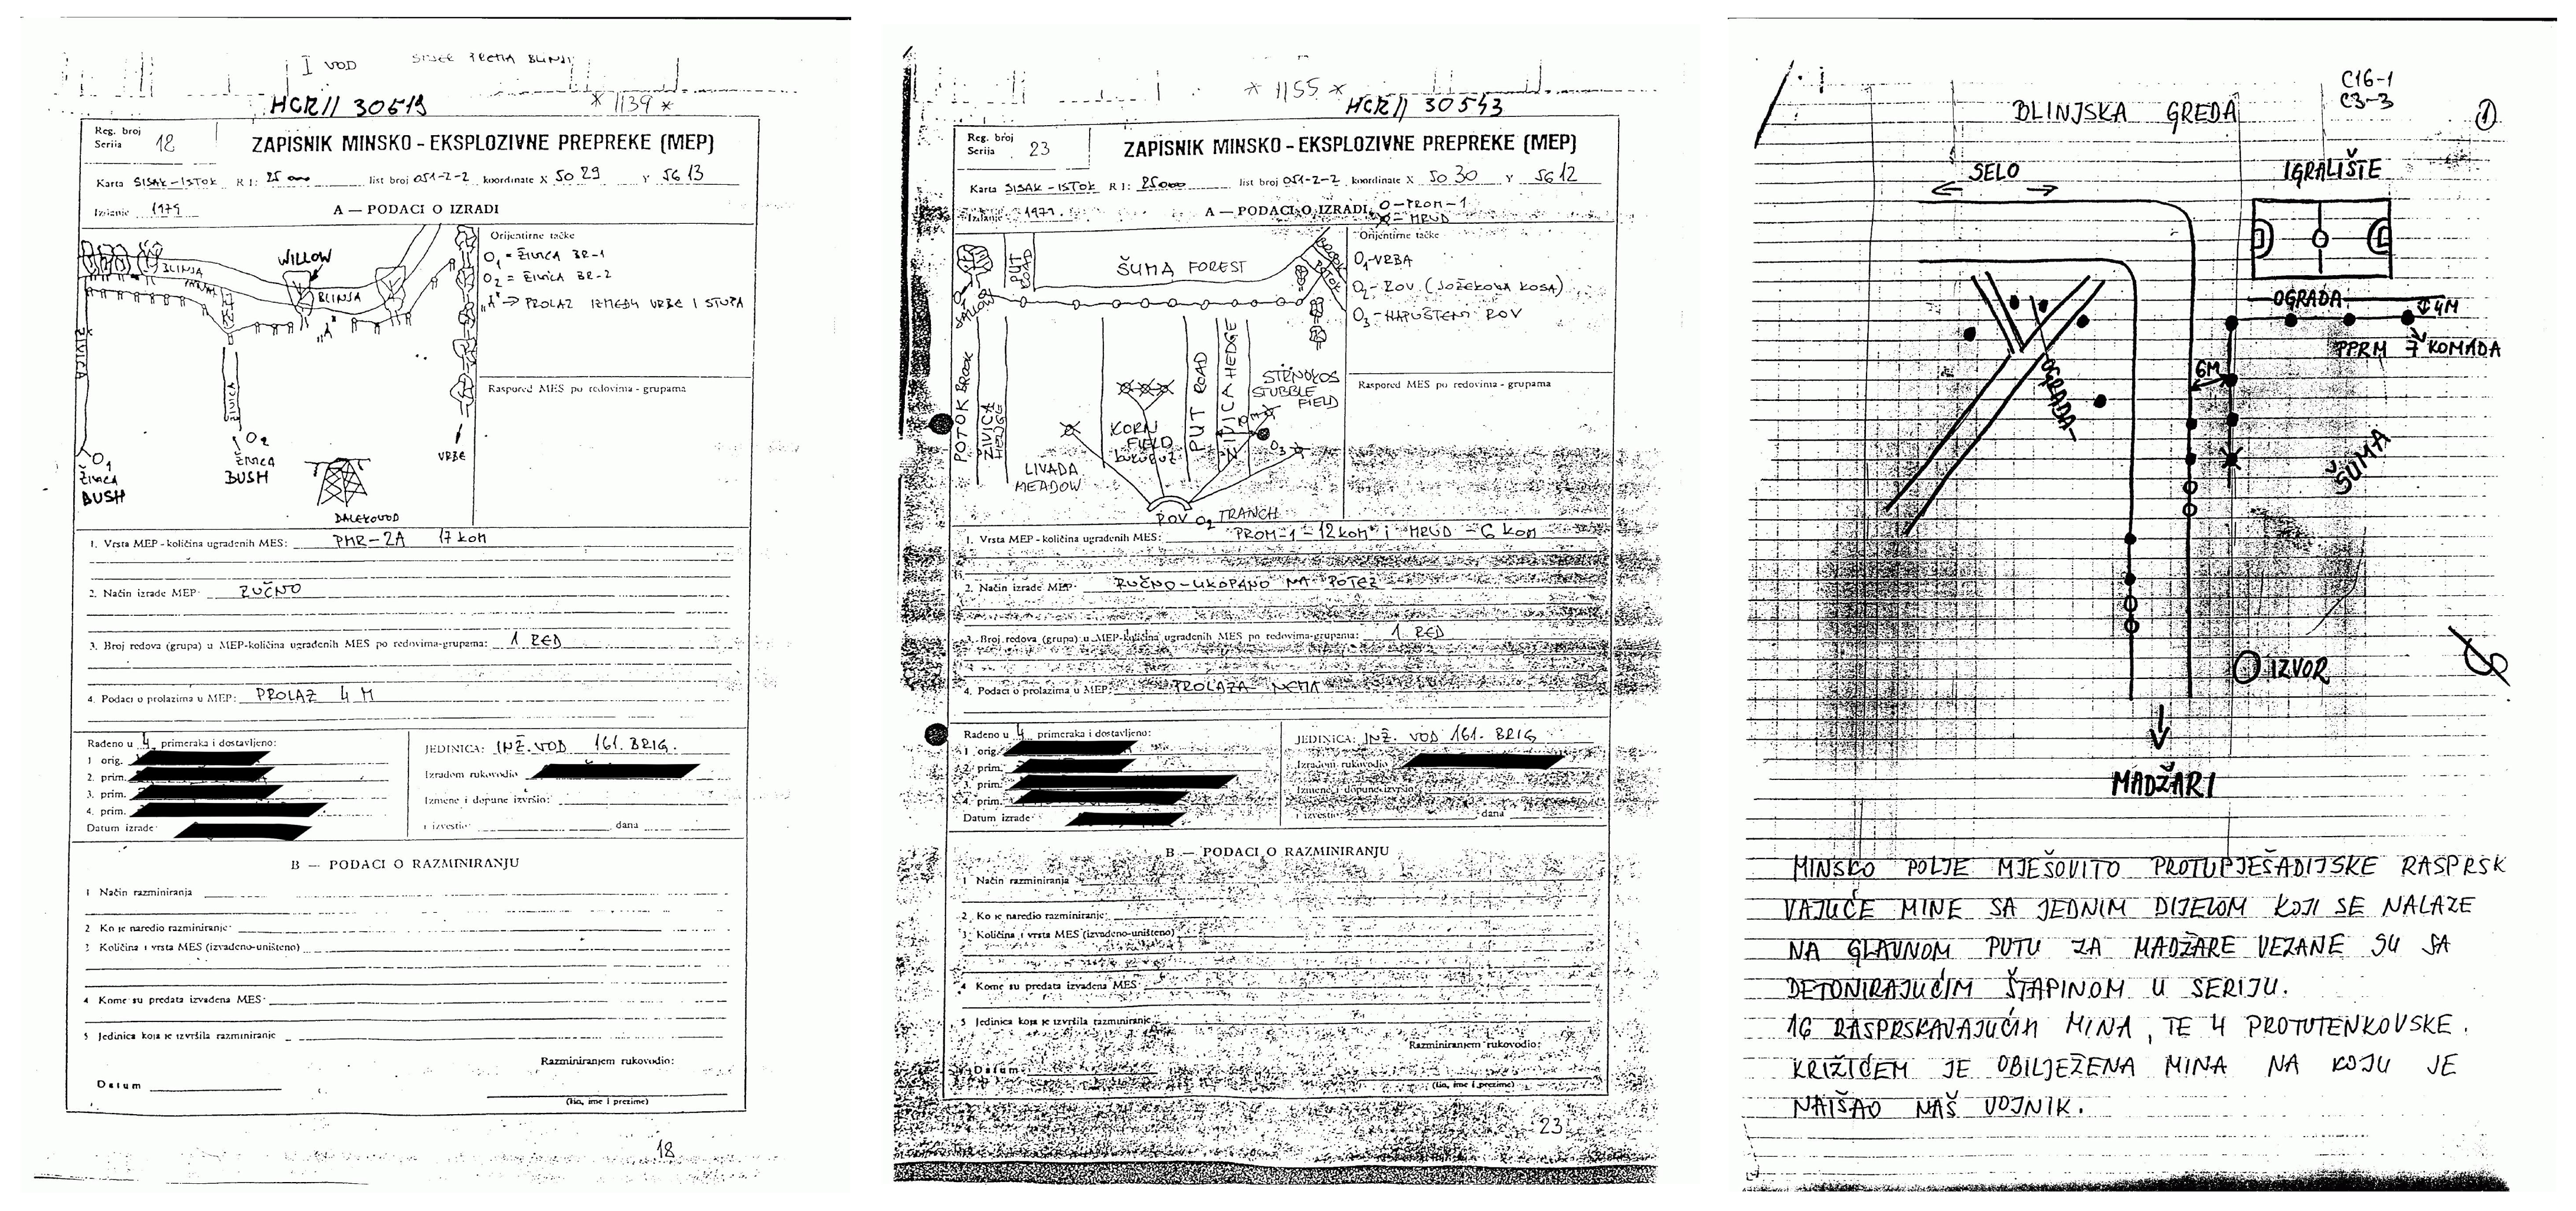 I VOD
HCR// 30519
* 1139 *
Reg. broj
Serija 18
ZAPISNIK MINSKO - EKSPLOZIVNE PREPREKE (MEP)
Karta SISAK-ISTOK R 1: 25000 list broj 051-2-2 koordinate X 5029 Y 5613
Izdanje 1979
A — PODACI O IZRADI
Orijentirne tačke
O1 = ŽIVICA BR-1
O2 = ŽIVICA BR-2
"A" → PROLAZ IZMEĐU VRBE I STUPA
WILLOW
BLINJA
BLINJA
ŽIVICA
ŽIVICA
O1
ŽIVICA
BUSH
O2
ŽIVICA
BUSH
"A"
VRBE
DALEKOVOD
Raspored MES po redovima - grupama
1. Vrsta MEP - količina ugrađenih MES: PMR-2A 17 KOM
2. Način izrade MEP: RUČNO
3. Broj redova (grupa) u MEP-količina ugrađenih MES po redovima-grupama: 1 RED
4. Podaci o prolazima u MEP: PROLAZ 4 M
Rađeno u 4 primeraka i dostavljeno:
1 orig.
2. prim.
3. prim.
4. prim.
Datum izrade:
JEDINICA: INŽ. VOD 161. BRIG.
Izradom rukovodio
Izmene i dopune izvršio:
i izvestio dana
B — PODACI O RAZMINIRANJU
1 Način razminiranja
2 Ko je naredio razminiranje:
3 Količina i vrsta MES (izvađeno-uništeno)
4 Kome su predata izvađena MES:
5 Jedinica koja je izvršila razminiranje
Razminiranjem rukovodio:
Datum
(čin, ime i prezime)
18
* 1155 *
HCR// 30543
Reg. broj
Serija 23
ZAPISNIK MINSKO - EKSPLOZIVNE PREPREKE (MEP)
Karta SISAK-ISTOK R 1: 25000 list broj 051-2-2 koordinate X 5030 Y 5612
Izdanje 1979.
A — PODACI O IZRADI
O-PROM-1
MRUD
Orijentirne tačke
O1-VRBA
O2-ROV (JOŽEKOVA KOSA)
O3-NAPUŠTENI ROV
PUT
ROAD
ŠUMA FOREST
POTOK BROOK
ŽIVICA
HEDGE
LIVADA
MEADOW
KORN
FIELD
KUKURUZ
PUT ROAD
ŽIVICA HEDGE
STRNOKOS
STUBBLE
FIELD
O3
ROV O2 TRANCH
Raspored MES po redovima - grupama
1. Vrsta MEP - količina ugrađenih MES: PROM-1 - 12 kom i MRUD - 6 kom
2. Način izrade MEP: RUČNO-UKOPANO NA POTEZ
3. Broj redova (grupa) u MEP-količina ugrađenih MES po redovima-grupama: 1 RED
4. Podaci o prolazima u MEP: PROLAZA NEMA
Rađeno u 4 primeraka i dostavljeno:
1 orig.
2. prim.
3. prim.
4. prim.
Datum izrade:
JEDINICA: INŽ. VOD 161. BRIG.
Izradom rukovodio
Izmene i dopune izvršio:
i izvestio dana
B — PODACI O RAZMINIRANJU
1 Način razminiranja
2. Ko je naredio razminiranje:
3. Količina i vrsta MES (izvađeno-uništeno)
4 Kome su predata izvađena MES:
5 Jedinica koja je izvršila razminiranje
Razminiranjem rukovodio:
Datum
(čin, ime i prezime)
23
C16-1
C3-3
BLINJSKA GREDA
1
SELO
IGRALIŠTE
OGRADA
4M
PPRM 7 KOMADA
6M
OGRADA
ŠUMA
IZVOR
MADŽARI
MINSKO POLJE MJEŠOVITO PROTUPJEŠADIJSKE RASPRSK
VAJUĆE MINE SA JEDNIM DIJELOM KOJI SE NALAZE
NA GLAVNOM PUTU ZA MADŽARE VEZANE SU SA
DETONIRAJUĆIM ŠTAPINOM U SERIJU.
16 RASPRSKAVAJUĆIH MINA, TE 4 PROTUTENKOVSKE.
KRIŽIĆEM JE OBILJEŽENA MINA NA KOJU JE
NAIŠAO NAŠ VOJNIK.